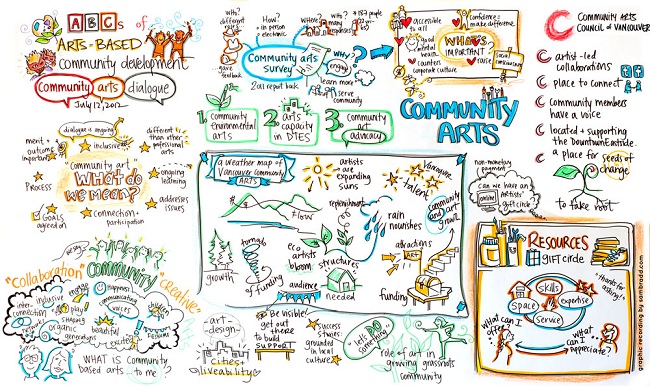 ABCs of
ARTS-BASED
community development
Community arts dialogue
July 12, 2012
Why?
different roles
gave feedback
How?
in person
electronic
Where?
with
how many responses?
183 people
Community arts
survey
2011 report back
Why?
engage
learn more
serve
community
1. Community
Environmental
arts
2. arts
capacity
in DTES
3. Community
art
advocacy
accessible
to all
mental
health
counters
corporate culture
Confidence to
make difference
WHAT'S
IMPORTANT
voice
social
COMMUNITY
ARTS
COMMUNITY ARTS
COUNCIL OF VANCOUVER
artist-led
collaborations
place to connect
Community members
have a voice
located + supporting
the Downtown Eastside
a place for seeds of
change
to take root
dialogue is ongoing
inclusive
outcome
important
different
than other
professional
arts
"Community art"
WHAT do
we mean?
Process
ongoing
learning
GOALS
agreed on
connection +
participation
addresses
issues
a weather map of
Vancouver community
ARTS
artists
are expanding
suns
Vancouver
talent
flow
replenishment
rain
nourishes
community
and art
grow
growth
tornado
of funding
eco
artists
bloom
structures
audience
needed
attractions
ART
funding
non-monetary
payment
Can we have an
artists'
online
gift circle
RESOURCES
GIFT CIRCLE
"thanks for
SKILLS
SPACE
expertise
service
What can I
offer?
What can I
appreciate?
graphic recording by sambradd.com
"Collaboration"
community
"creative"
inter-
connection
inclusive
energy
happening
communicating
voices
children
playing
sharing
organic
generations
beautiful
WHAT IS Community
based arts to me?
art
design
Cities
liveability
Be visible/
get out
there
to build
SUPPORT
success
stories
grounded
in local
culture
"let's DO
something"
role of art in
growing grassroots
community